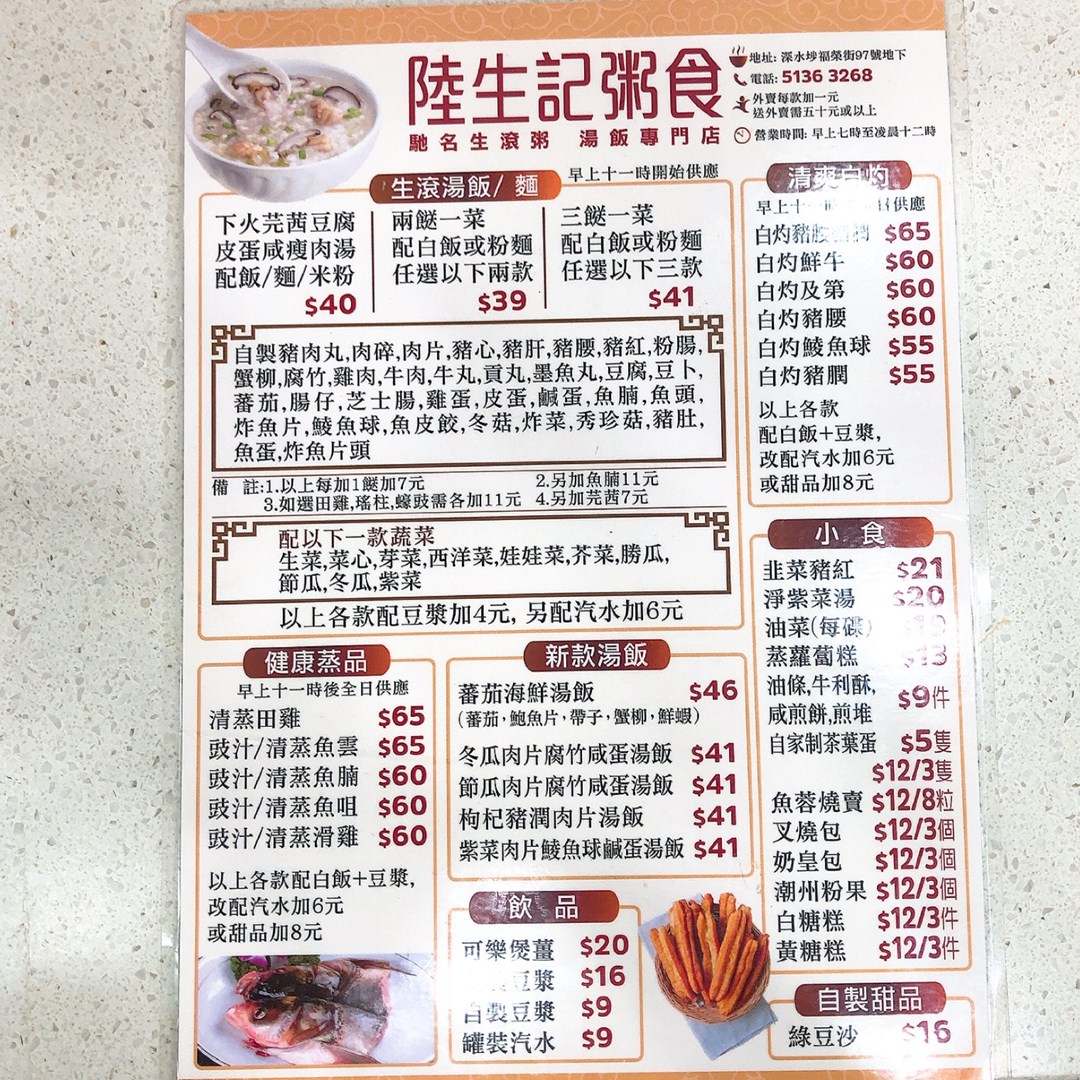 陸生記粥食
馳名生滾粥 湯飯專門店
地址: 深水埗福榮街97號地下
電話: 5136 3268
外賣每款加一元
送外賣需五十元或以上
營業時間: 早上七時至凌晨十二時
生滾湯飯/麵
早上十一時開始供應
下火芫茜豆腐
皮蛋咸瘦肉湯
配飯/麵/米粉
$40
兩餸一菜
配白飯或粉麵
任選以下兩款
$39
三餸一菜
配白飯或粉麵
任選以下三款
$41
自製豬肉丸,肉碎,肉片,豬心,豬肝,豬腰,豬紅,粉腸,
蟹柳,腐竹,雞肉,牛肉,牛丸,貢丸,墨魚丸,豆腐,豆卜,
蕃茄,腸仔,芝士腸,雞蛋,皮蛋,鹹蛋,魚腩,魚頭,
炸魚片,鯪魚球,魚皮餃,冬菇,炸菜,秀珍菇,豬肚,
魚蛋,炸魚片頭
備 註:1.以上每加1餸加7元 2.另加魚腩11元
3.如選田雞,瑤柱,蠔豉需各加11元 4.另加芫茜7元
配以下一款蔬菜
生菜,菜心,芽菜,西洋菜,娃娃菜,芥菜,勝瓜,
節瓜,冬瓜,紫菜
以上各款配豆漿加4元, 另配汽水加6元
清爽白灼
早上十 時 日供應
白灼豬腰 潤 $65
白灼鮮牛 $60
白灼及第 $60
白灼豬腰 $60
白灼鯪魚球 $55
白灼豬膶 $55
以上各款
配白飯+豆漿,
改配汽水加6元
或甜品加8元
小 食
韭菜豬紅 $21
淨紫菜湯 $20
油菜(每碟)
蒸蘿蔔糕 $13
油條,牛利酥,
咸煎餅,煎堆 $9件
自家制茶葉蛋 $5隻
$12/3隻
魚蓉燒賣 $12/8粒
叉燒包 $12/3個
奶皇包 $12/3個
潮州粉果 $12/3個
白糖糕 $12/3件
黃糖糕 $12/3件
健康蒸品
早上十一時後全日供應
清蒸田雞 $65
豉汁/清蒸魚雲 $65
豉汁/清蒸魚腩 $60
豉汁/清蒸魚咀 $60
豉汁/清蒸滑雞 $60
以上各款配白飯+豆漿,
改配汽水加6元
或甜品加8元
新款湯飯
蕃茄海鮮湯飯 $46
(蕃茄,鮑魚片,帶子,蟹柳,鮮蝦)
冬瓜肉片腐竹咸蛋湯飯 $41
節瓜肉片腐竹咸蛋湯飯 $41
枸杞豬潤肉片湯飯 $41
紫菜肉片鯪魚球鹹蛋湯飯 $41
飲 品
可樂煲薑 $20
豆漿 $16
自製豆漿 $9
罐裝汽水 $9
自製甜品
綠豆沙 $16